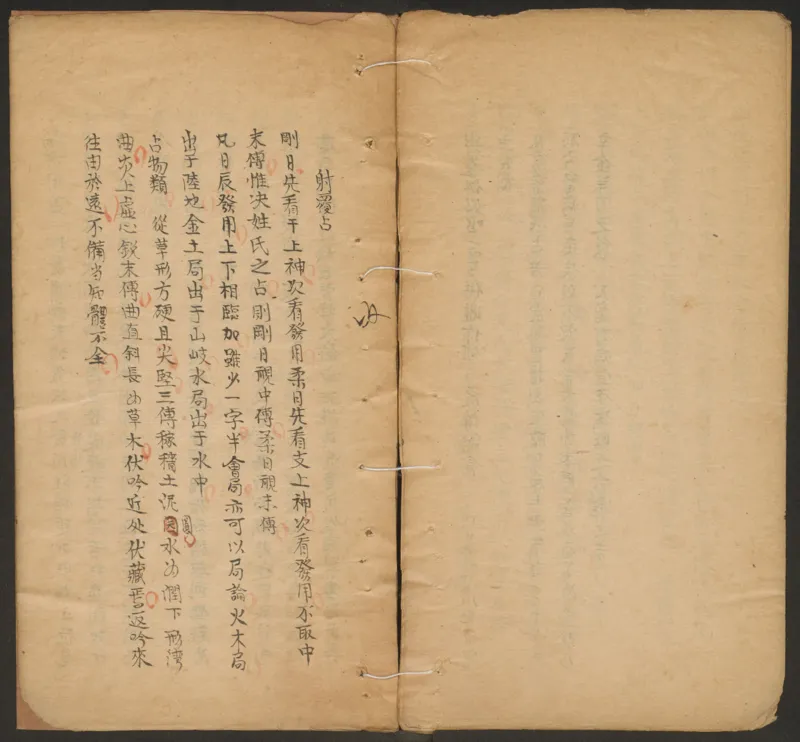 射覆占
剛日先看干上神次看發用柔日先看支上神次看發用不取中
末傳惟决姓氏之占則剛日視中傳柔日視末傳
凡日辰發用上下相臨加雖少一字半會局亦可以局論火木局
出于陸地金土局出于山岐水局出于水中
占物類 從革形方硬且尖堅三傳稼穡土泥圓水曲潤下形灣
曲炎上虛心銳末傳曲直斜長曲草木伏吟近处伏藏返吟來
往由於遠不備当知體不全